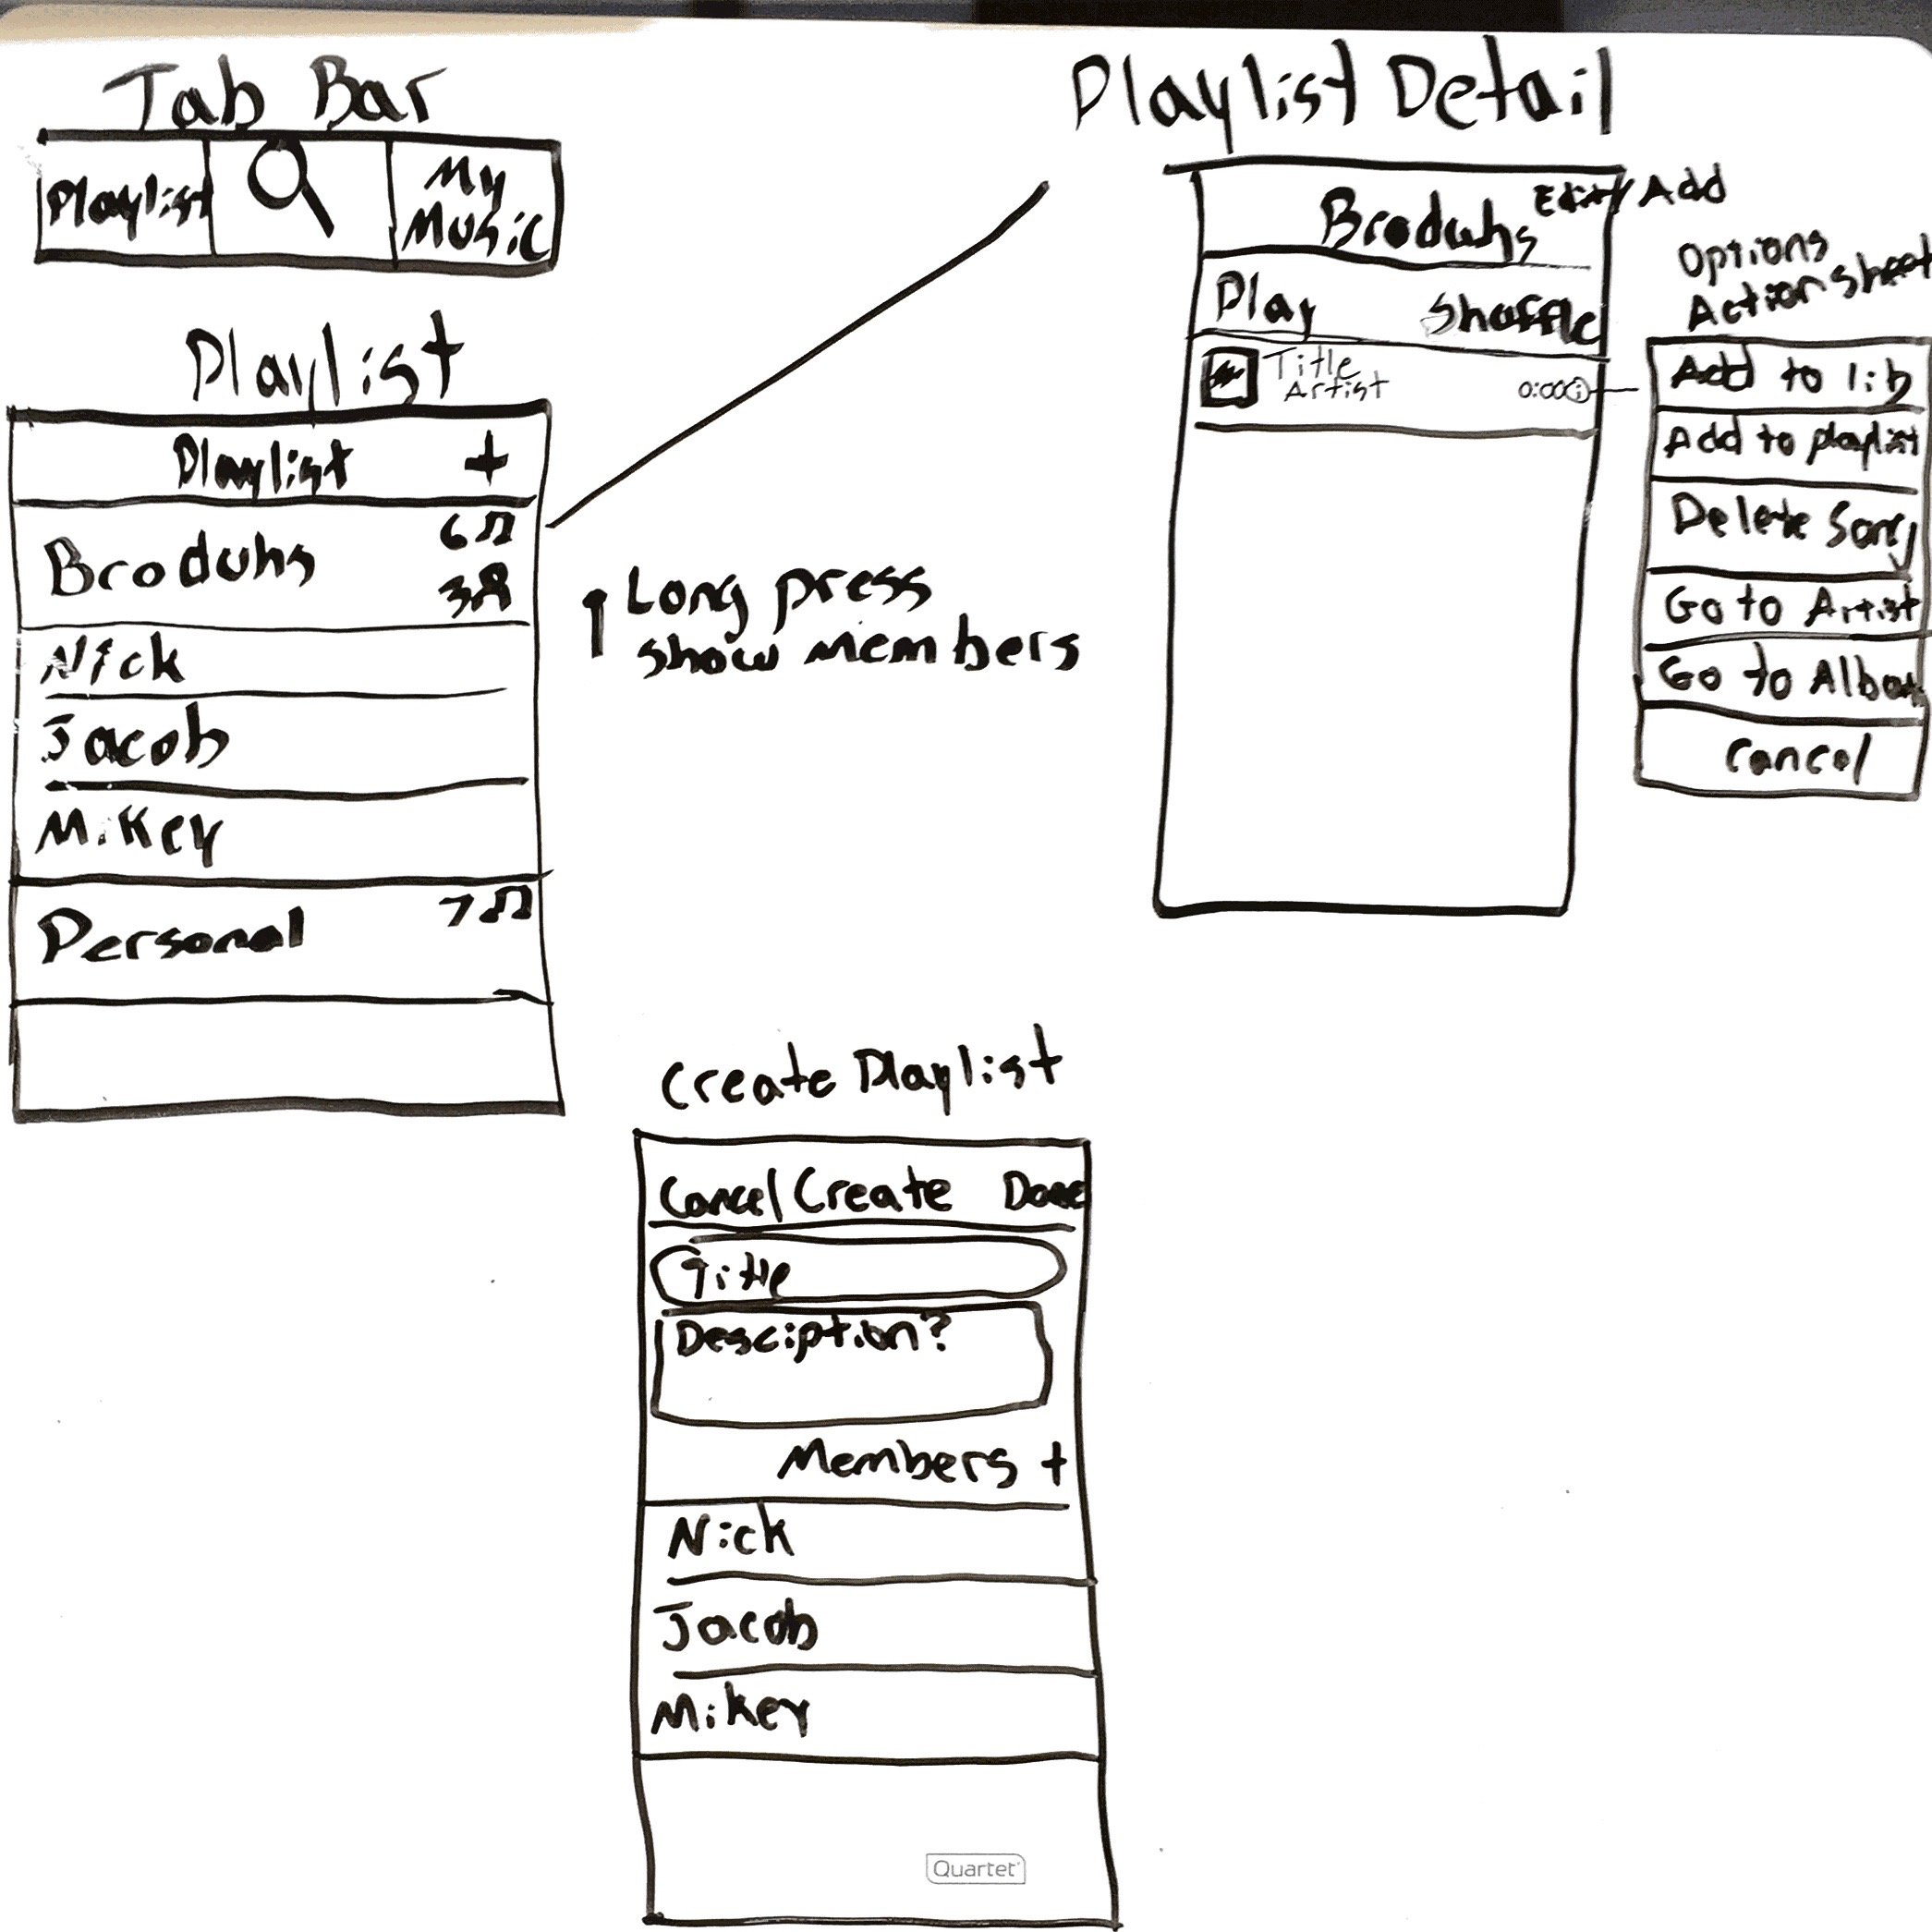 Tab Bar
Playlist
My
Music
Playlist
Playlist +
Broduhs
6
3
Nick
Jacob
Mikey
Personal
7
Long press
show members
Playlist Detail
Broduhs
Edit/Add
Play Shuffle
Title
Artist
0:00
Options
Action sheet
Add to lib
Add to playlist
Delete Song
Go to Artist
Go to Album
Cancel
Create Playlist
Cancel Create Done
Title
Desciption?
Members +
Nick
Jacob
Mikey
Quartet